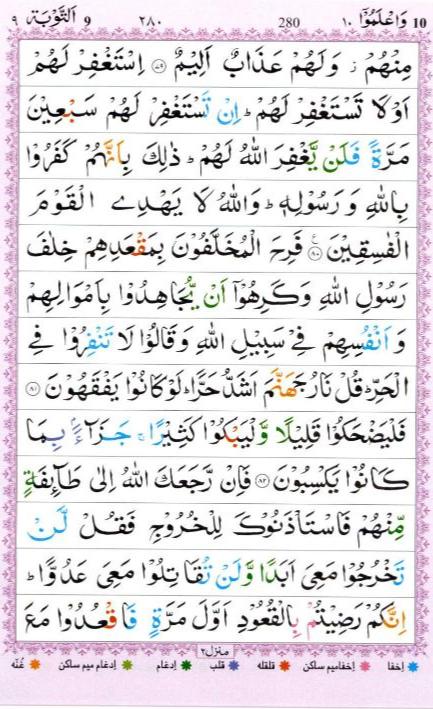 10 وَاعْلَمُوْٓا ١٠ 280 ٢٨٠ اَلتَّوْبَة 9 ٩
مِنْهُمْ ز وَلَهُمْ عَذَابٌ اَلِيْمٌ ﴿۷۹﴾ اِسْتَغْفِرْ لَهُمْ
اَوْ لَا تَسْتَغْفِرْ لَهُمْ ؕ اِنْ تَسْتَغْفِرْ لَهُمْ سَبْعِيْنَ
مَرَّةً فَلَنْ يَّغْفِرَ اللّٰهُ لَهُمْ ؕ ذٰلِكَ بِاَنَّهُمْ كَفَرُوْا
بِاللّٰهِ وَرَسُوْلِهٖ ؕ وَاللّٰهُ لَا يَهْدِے الْقَوْمَ
الْفٰسِقِيْنَ ﴿۸۰﴾ ع فَرِحَ الْمُخَلَّفُوْنَ بِمَقْعَدِهِمْ خِلٰفَ
رَسُوْلِ اللّٰهِ وَكَرِهُوْٓا اَنْ يُّجَاهِدُوْا بِاَمْوَالِهِمْ
وَاَنْفُسِهِمْ فِےْ سَبِيْلِ اللّٰهِ وَقَالُوْا لَا تَنْفِرُوْا فِے
الْحَرِّ ؕ قُلْ نَارُ جَهَنَّمَ اَشَدُّ حَرًّا ؕ لَوْ كَانُوْا يَفْقَهُوْنَ ﴿۸۱﴾
فَلْيَضْحَكُوْا قَلِيْلًا وَّلْيَبْكُوْا كَثِيْرًا ۚ جَزَآءًۢ بِمَا
كَانُوْا يَكْسِبُوْنَ ﴿۸۲﴾ فَاِنْ رَّجَعَكَ اللّٰهُ اِلٰى طَآئِفَةٍ
مِّنْهُمْ فَاسْتَاْذَنُوْكَ لِلْخُرُوْجِ فَقُلْ لَّنْ
تَخْرُجُوْا مَعِیَ اَبَدًا وَّلَنْ تُقَاتِلُوْا مَعِیَ عَدُوًّا ؕ
اِنَّكُمْ رَضِيْتُمْ بِالْقُعُوْدِ اَوَّلَ مَرَّةٍ فَاقْعُدُوْا مَعَ
منزل٢
اِخفا اِخفامیم ساکن قلقله قلب اِدغام اِدغام میم ساکن غُنّه